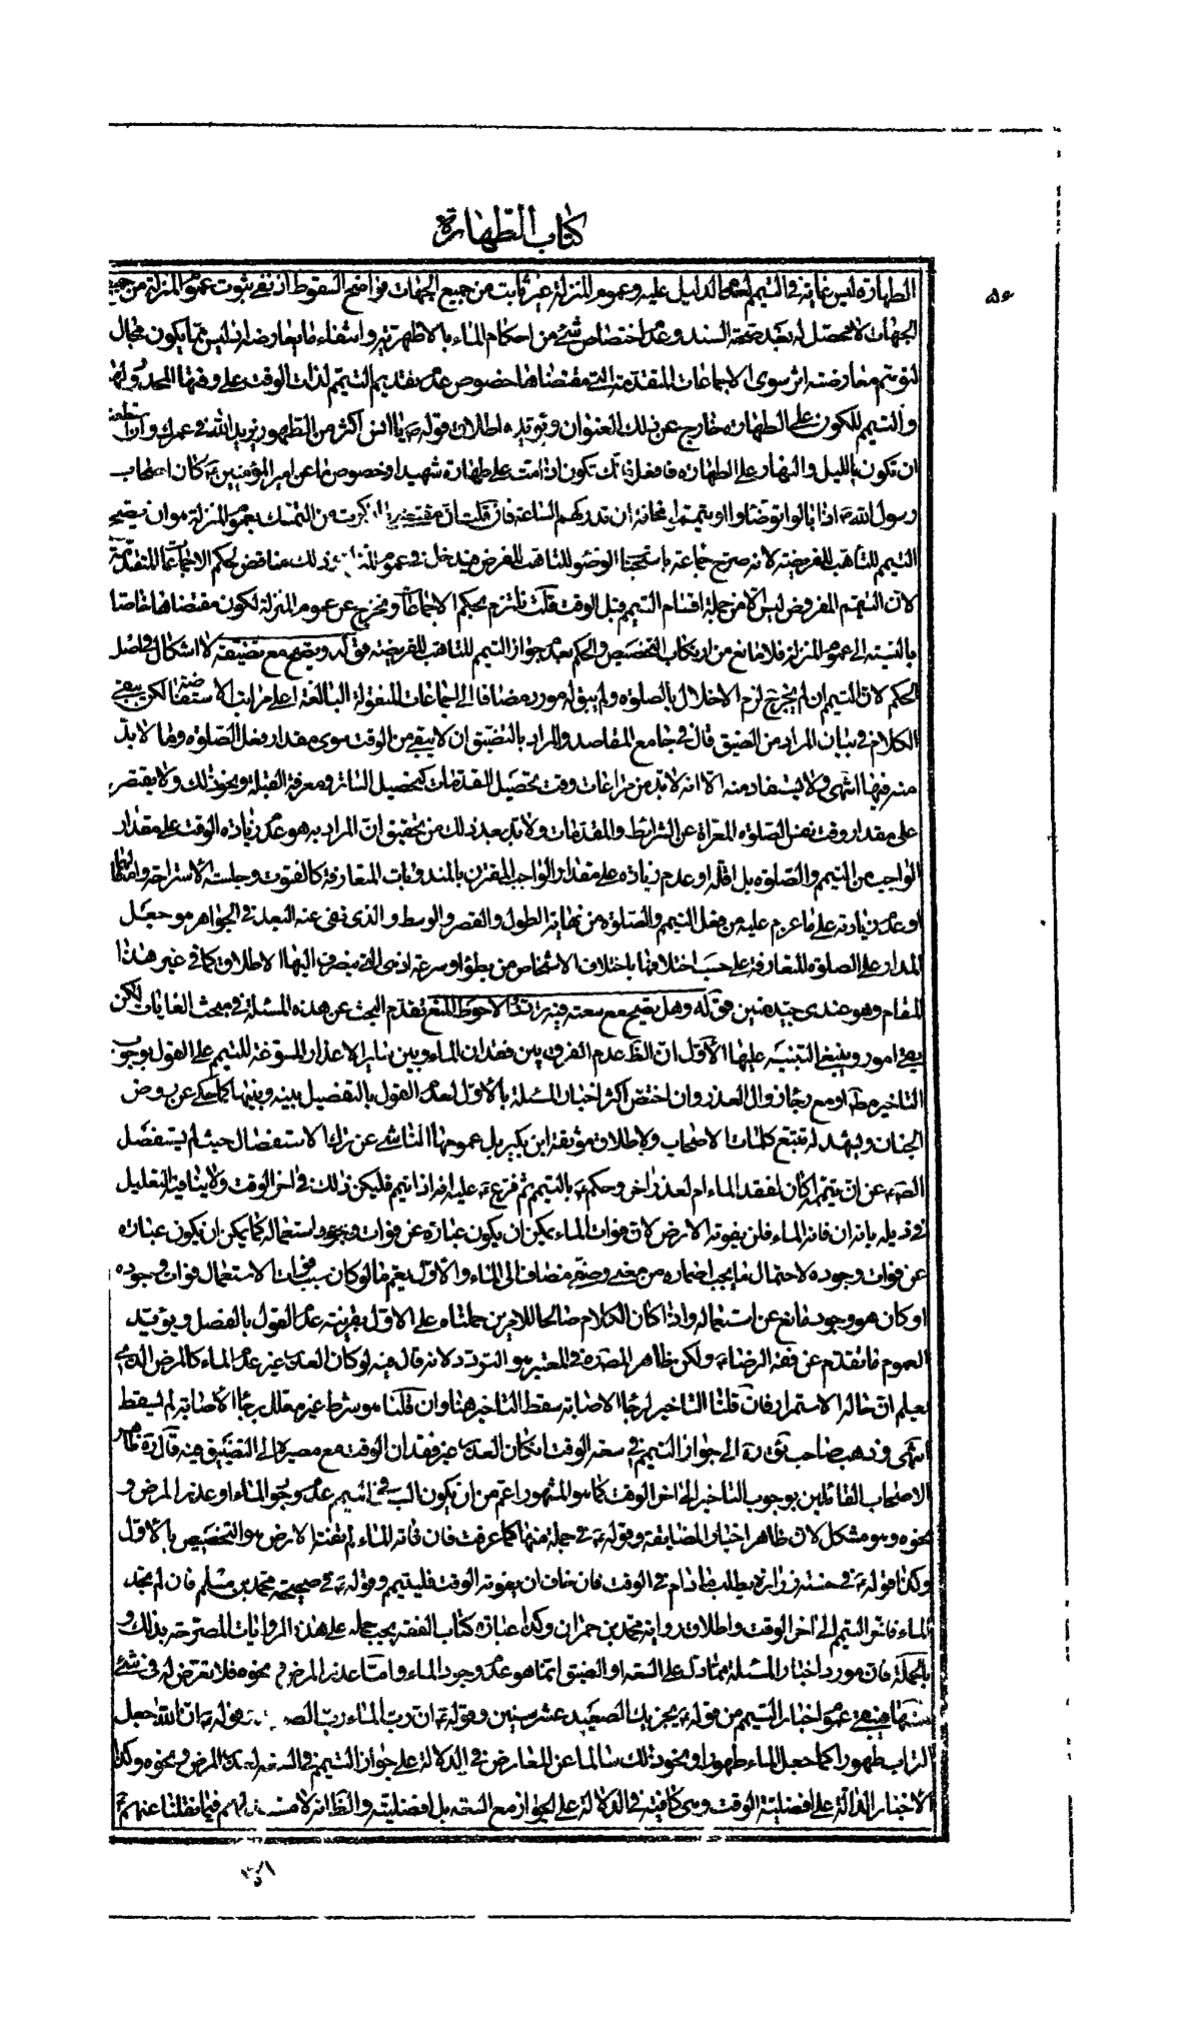 كتاب الطهارة
۵۶
الطهارة ليس غاية في التيمم لعدم الدليل عليه وعموم المنزلة غير ثابت من جميع الجهات فواضح السقوط اذ نفي ثبوت عموم المنزلة من جميع
الجهات لا محصل له بعد صحة السند وعدم اختصاص شئ من احكام الماء بالاظهرية وانتفاء ما يعارضه اذ ليس مما يكون مجال
لتوهم معارضته اثر سوى الاجماعات المتقدمة التي مقتضاها خصوص عدم تقديم التيمم لذات الوقت على وقتها
والتيمم للكون على الطهارة خارج عن ذلك العنوان ويؤيده اطلاق قوله ع يا انس اكثر من الطهور يزيد الله في عمرك وان استطعت
ان تكون بالليل والنهار على الطهارة فافعل فانك تكون اذا مت على طهارة شهيدا وخصوص ما عن امير المؤمنين ع كان اصحاب
رسول الله ص اذا بالوا توضاوا او تيمموا مخافة ان تدركهم الساعة فان قلت ان مقتضى ما ذكرت من التمسك بعموم المنزلة هو ان يصح
التيمم للتاهب للفريضة لانه صرح جماعة باستحباب الوضوء للتاهب للفرض فيدخل في عموم المنزلة وذلك مناقض لحكم الاجماعات المتقدمة
لان التيمم المفروض ليس الا من جملة اقسام التيمم قبل الوقت قلت نلتزم بحكم الاجماعات ونخرج عن عموم المنزلة لكون مقتضاها خاصا
بالنسبة الى عموم المنزلة فلا مانع من ارتكاب التخصيص والحكم بعدم جواز التيمم للتاهب للفريضة قوله ويصح مع تضيقه لا اشكال في اصل
الحكم لان التيمم ان لم يجز ح لزم الاخلال بالصلوة ولم يبق له مورد مضافا الى اجماعات المنقولة البالغة اعلى مراتب الاستفاضة لكن يبقى
الكلام في بيان المراد من الضيق قال في جامع المقاصد والمراد بالتضيق ان لا يبقى من الوقت سوى مقدار فعل الصلوة وما لا بد
منه فيها انتهى ولا يستفاد منه الا انه لا بد من مراعات وقت تحصيل المقدمات كتحصيل الساتر ومعرفة القبلة ونحو ذلك ولا يقتصر
على مقدار وقت نفس الصلوة المعراة عن الشرائط والمقدمات ولا بد بعد ذلك من تحقيق ان المراد به هو عدم زيادة الوقت على مقدار
الواجب من التيمم والصلوة بل اقله او عدم زيادة على مقدار الواجب المقترن بالمندوبات المتعارفة كالقنوت وجلسة الاستراحة وامثالهما
او عدم زيادته على ما عزم عليه من فعل التيمم والصلوة من نهاية الطول والقصر والوسط والذي نفى عنه البعد في الجواهر هو جعل
المدار على الصلوة المتعارفة على حسب اختلافها باختلاف الاشخاص من بطؤ او سرعة اذ هي التي ينصرف اليها الاطلاق كما في غير هذا
المقام وهو عندي جيد متين قوله وهل يصح مع سعته فيه تردد الاحوط المنع تقدم البحث عن هذه المسئلة في مبحث الغايات لكن
بقى امور ينبغي التنبيه عليها الاول ان الظ عدم الفرق بين فقدان الماء وبين ساير الاعذار المسوغة للتيمم على القول بوجوب
التاخير مط او مع رجاء زوال العذر وان اختص اكثر اخبار المسئلة بالاول لعدم القول بالتفصيل بينه وبينها كما حكى عن روض
الجنان ويشهد له تتبع كلمات الاصحاب ولاطلاق موثقة ابن بكير بل عمومها الناشي عن ترك الاستفصال حيث لم يستفصل
الص ع عن ان تيممه اكان لفقد الماء ام لعذر اخر وحكم ع بالتيمم ثم فرع ع عليه انه اذا تيمم فليكن ذلك في اخر الوقت ولا ينافيه التعليل
في ذيله بانه ان فاته الماء فلن يفوته الارض لان فوات الماء يمكن ان يكون عبارة عن فوات وجود استعماله كما يمكن ان يكون عبارة
عن فوات وجوده لاحتمال ما يجب اضماره من معنى وصفي مضاف الى الماء والاول يعم ما لو كان سبب فوات الاستعمال فوات وجوده
او كان هو وجود مانع عن استعماله واذا كان الكلام صالحا للامرين حملناه على الاول بقرينة عدم القول بالفصل ويؤيد
العموم ما تقدم عن فقه الرضا ع ولكن ظاهر المصنف ره في المعتبر هو التردد لانه قال فيه لو كان العذر غير عدم الماء كالمرض الذي
يعلم ان حاله الاستمرار فان قلنا التاخير لرجاء الاصابة سقط التاخير هنا وان قلنا هو شرط غير معلل برجاء الاصابة لم يسقط
انتهى وذهب صاحب ره الى جواز التيمم في سعة الوقت اذا كان العذر غير فقدان الوقت مع مصيره الى التضييق فيه قال ره ظاهر
الاصحاب القائلين بوجوب التاخير الى اخر الوقت كما هو المشهور اعم من ان يكون السبب في التيمم عدم وجود الماء او عذر المرض و
نحوه وهو مشكل لان ظاهر اخبار المضايقة وقوله ع في جملة منها كما عرفت فان فاته الماء لم يفته الارض هو التخصيص بالاول
وكذا قوله ع في حسنة زرارة يطلب ما دام في الوقت فان خاف ان يفوته الوقت فليتيمم وقوله ع في صحيحة محمد بن مسلم فان لم تجد
الماء فاخر التيمم الى اخر الوقت واطلاق رواية محمد بن حمران وكذا عبارة كتاب الفقه يجب حمله على هذه الروايات المصرحة بذلك و
بالجملة فان مورد اخبار المسئلة مما دل على السعة او الضيق انما هو عدم وجود الماء واما عذر المرض و نحوه فلا تعرض له في شئ
منها فيبقى عموم اخبار التيمم من قوله ع يجزيك الصعيد عشر سنين وقوله ع ان رب الماء رب الصعيد وقوله ع ان الله جعل
التراب طهورا كما جعل الماء طهورا ونحو ذلك سالما عن المعارض في الدلالة على جواز التيمم في السعة لعذر المرض ونحوه وكذا
الاخبار الدالة على افضلية الوقت وهي كافية في الدلالة على الجواز مع السعة بل افضليته والظ انه لا مستند لهم فيما نقلنا عنهم